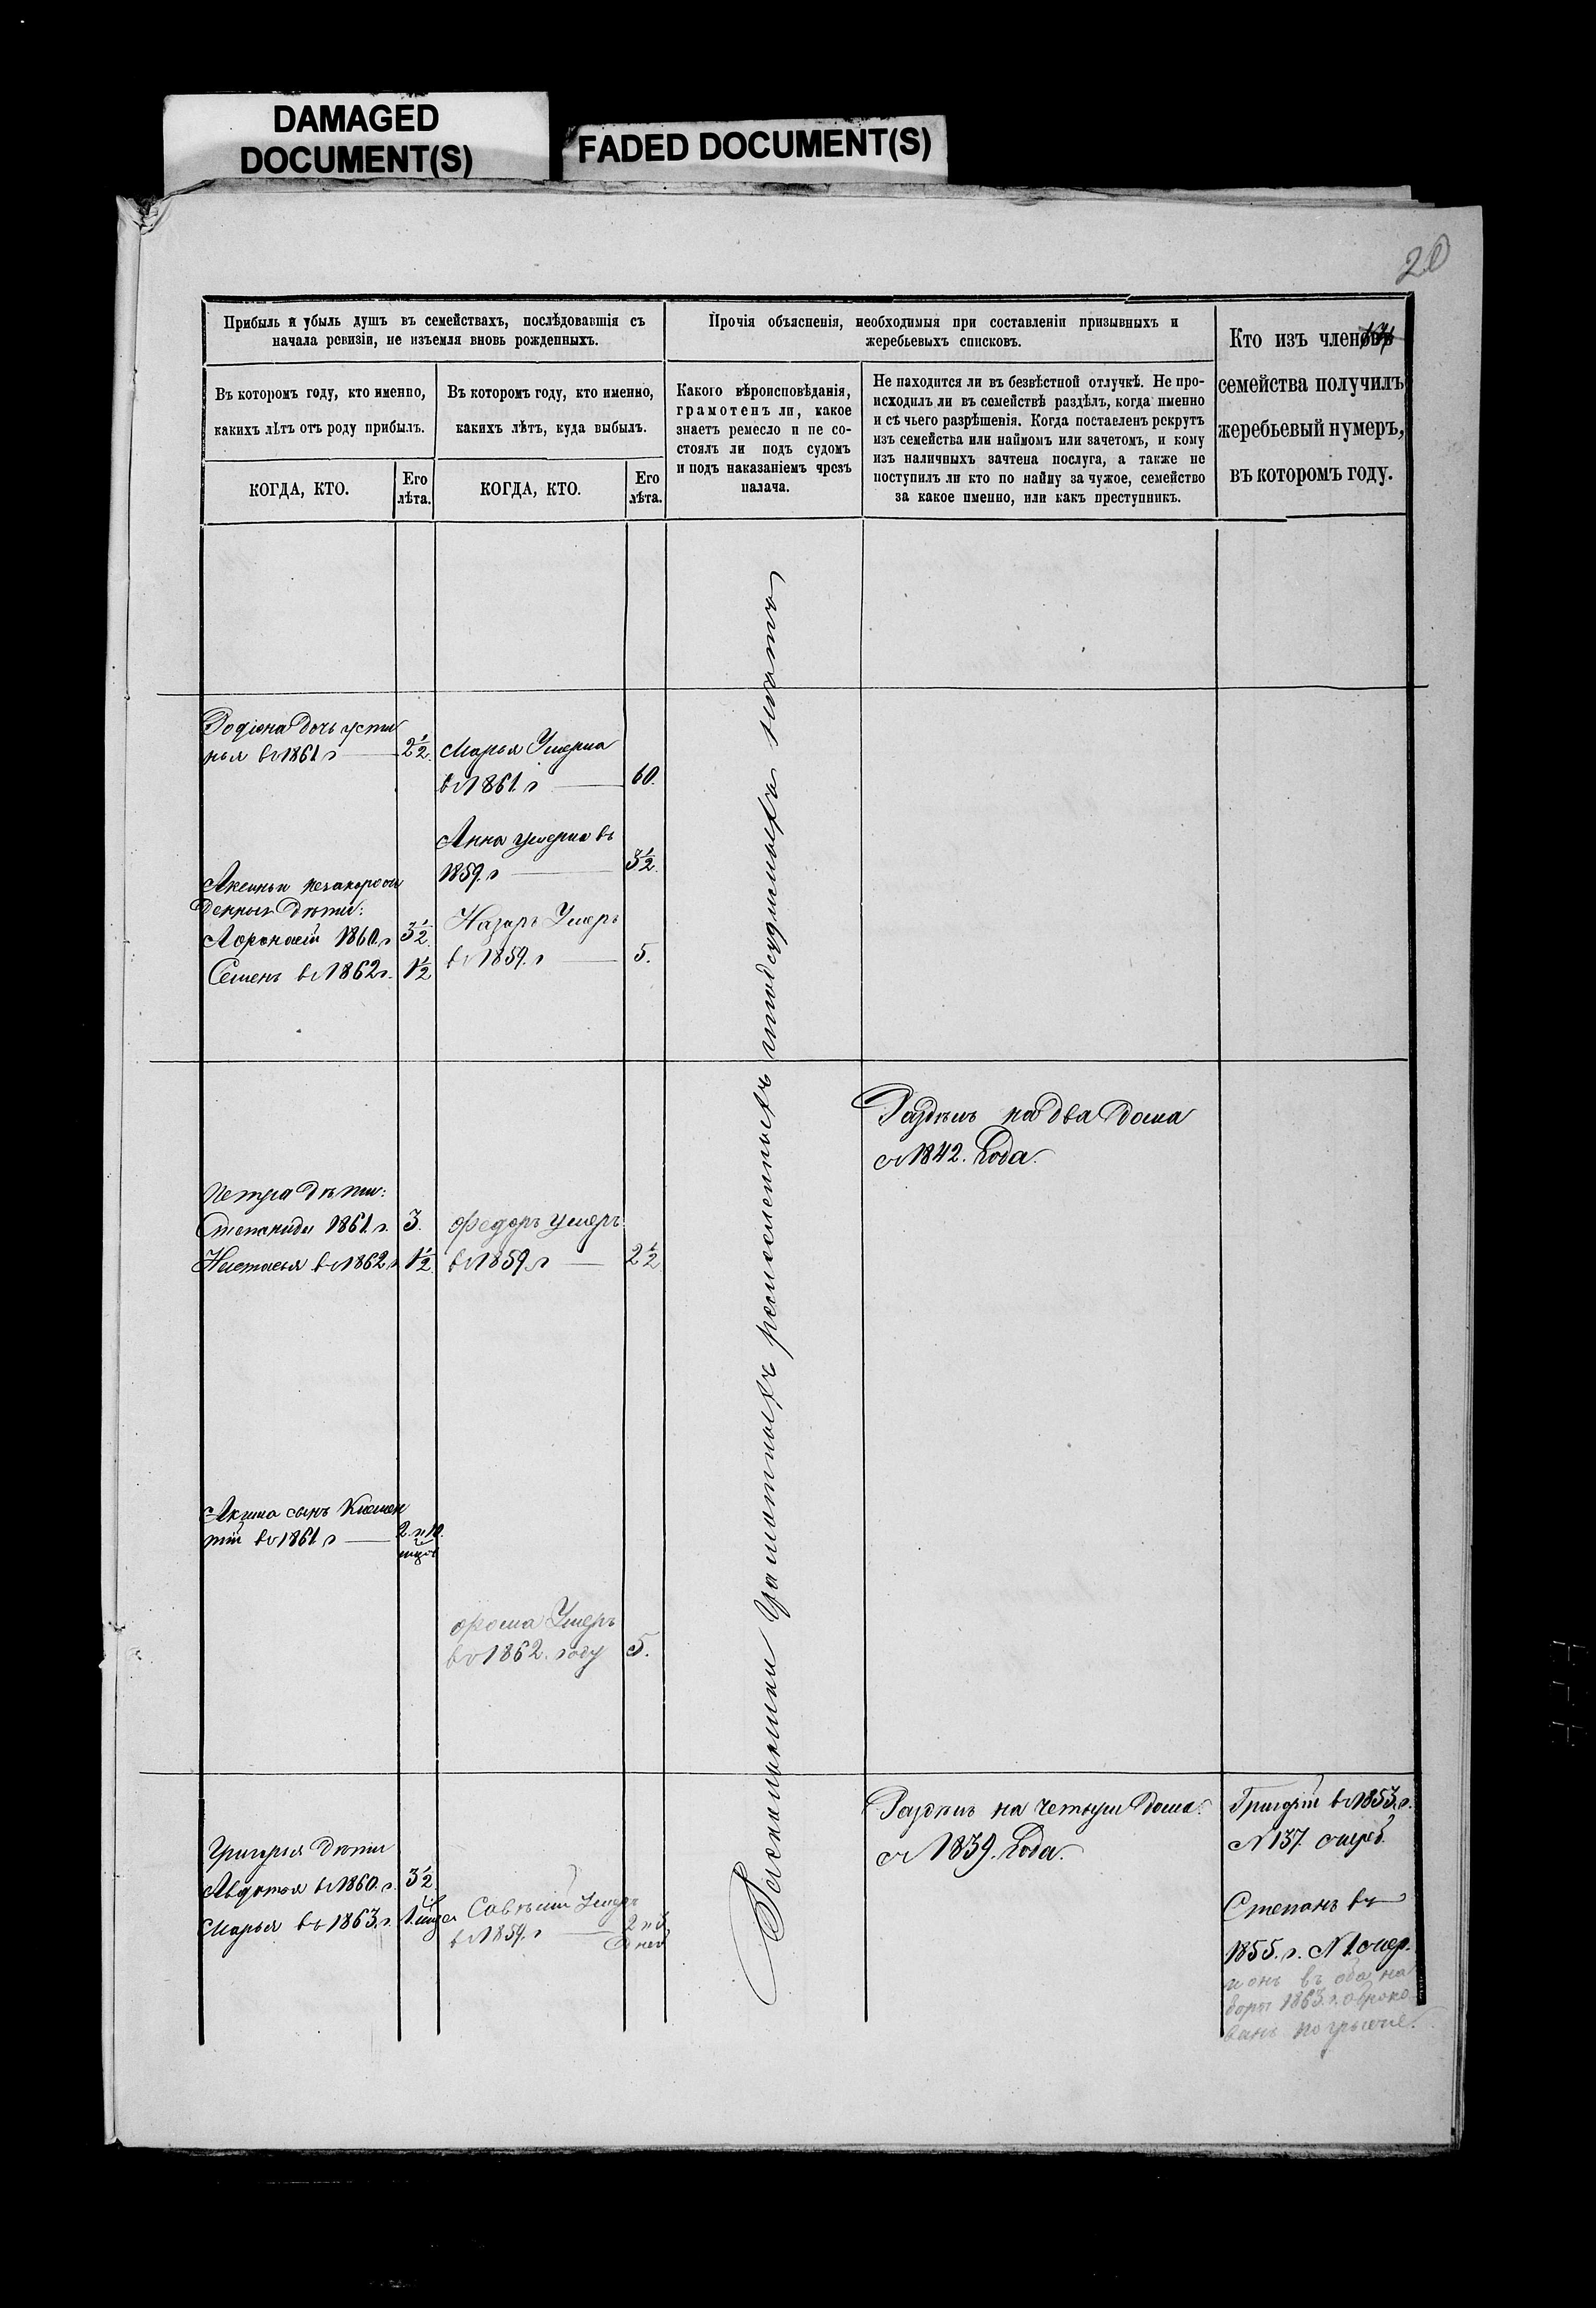 DAMAGED
DOCUMENT(S)
FADED DOCUMENT(S)
20
Прибыль и убыль душъ въ семействахъ, послѣдовавшія съ
начала ревизіи, не изъемля вновь рожденныхъ.
Прочія объясненія, необходимыя при составленіи призывныхъ и
жеребьевыхъ списковъ.
Кто изъ членовъ
семейства получилъ
жеребьевый нумеръ,
въ которомъ году.
Въ которомъ году, кто именно,
какихъ лѣтъ отъ роду прибылъ.
Въ которомъ году, кто именно,
какихъ лѣтъ, куда выбылъ.
Какого вѣроисповѣданія,
грамотенъ ли, какое
знаетъ ремесло и не со-
стоялъ ли подъ судомъ
и подъ наказаніемъ чрезъ
палача.
Не находится ли въ безвѣстной отлучкѣ. Не про-
исходилъ ли въ семействѣ раздѣлъ, когда именно
и съ чьего разрѣшенія. Когда поставленъ рекрутъ
изъ семейства или наймомъ или зачетомъ, и кому
изъ наличныхъ зачтена послуга, а также не
поступилъ ли кто по найму за чужое, семейство
за какое именно, или какъ преступникъ.
КОГДА, КТО.
Его
лѣта.
КОГДА, КТО.
Его
лѣта.
Родіона дочь Усти
нья въ 1861 г 2½
Марья Умерла
въ 1861. г 60.
Анна умерла въ
1859. г 3½
Аксиньи незаконорож
денныя дѣти:
1860. г 3½
Семенъ въ 1862 г. 1½
Назаръ Умеръ
въ 1859. г 5.
Раздѣлъ на два дома
съ 1842. Года.
Петра дѣти:
Степанида 1861. г. 3.
Настасья въ 1862 г 1½
Федоръ умеръ
въ 1859. г 2½
Акима сынъ Климен
тій въ 1861 г 2. и 10.
Фома Умеръ
въ 1862. году 5.
грамотныхъ ремесленныхъ и подсудимыхъ нѣтъ
Раздѣлъ на четыри дома.
съ 1839. Года.
Григорій въ 1853. г.
N 137. очеред.
Григорья дѣти
Авдотья въ 1860. г. 3½
Марья въ 1863. г. 1.
Савелій Умеръ
въ 1859. г
Степанъ въ
1855. г. N 1. очер.
и онъ въ оба на
боры 1863. г. обрако
ванъ по грыже.